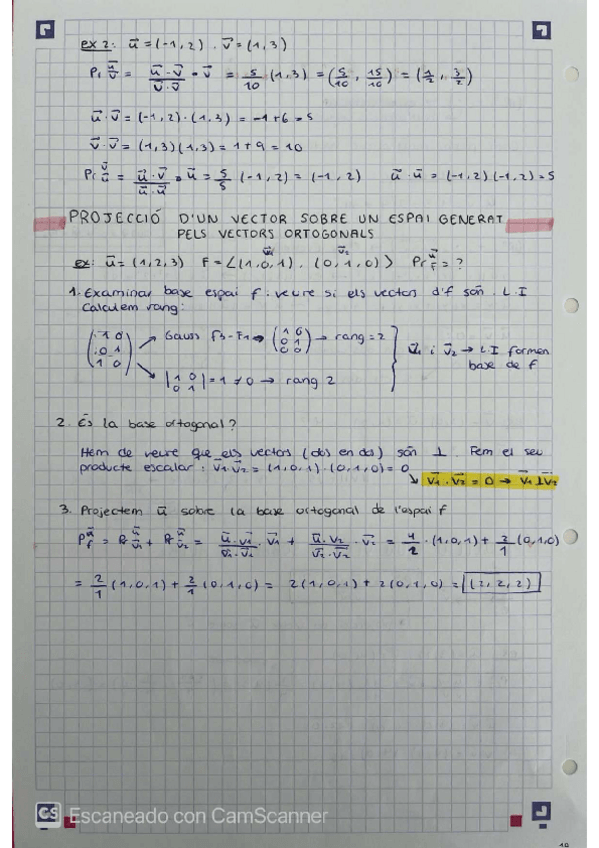 ex 2: u⃗ = (-1, 2) . v⃗ = (1, 3)
Pr u⃗ v⃗ = u⃗ · v⃗ / v⃗ · v⃗ · v⃗ = 5/10 (1, 3) = (5/10, 15/10) = (1/2, 3/2)
u⃗ · v⃗ = (-1, 2) · (1, 3) = -1+6 = 5
v⃗ · v⃗ = (1, 3)(1, 3) = 1+9 = 10
Pr v⃗ u⃗ = u⃗ · v⃗ / u⃗ · u⃗ · u⃗ = 5/5 (-1, 2) = (-1, 2) u⃗ · u⃗ = (-1, 2)(-1, 2) = 5
PROJECCIÓ D'UN VECTOR SOBRE UN ESPAI GENERAT
PELS VECTORS ORTOGONALS
ex: u⃗ = (1, 2, 3) F = <(1, 0, 1) . (0, 1, 0)> Pr u⃗ F = ?
v⃗1 v⃗2
1. Examinar base espai f. veure si els vectors d'f són L.I
Calculem rang:
(1 0, 0 1, 1 0) → Gauss F3-F1 → (1 0, 0 1, 0 0) → rang = 2
→ |1 0, 0 1| = 1 ≠ 0 → rang 2
v⃗1 i v⃗2 → L.I formen
base de f
2. És la base ortogonal?
Hem de veure que els vectors (dos en dos) són ⊥. Fem el seu
producte escalar: v⃗1 · v⃗2 = (1, 0, 1) · (0, 1, 0) = 0
↳ v⃗1 · v⃗2 = 0 → v⃗1 ⊥ v⃗2
3. Projectem u⃗ sobre la base ortogonal de l'espai f
P u⃗ f = Pr u⃗ v⃗1 + Pr u⃗ v⃗2 = u⃗ · v⃗1 / v⃗1 · v⃗1 · v⃗1 + u⃗ · v⃗2 / v⃗2 · v⃗2 · v⃗2 = 4/2 · (1, 0, 1) + 2/1 (0, 1, 0)
= 2/1 (1, 0, 1) + 2/1 (0, 1, 0) = 2(1, 0, 1) + 2(0, 1, 0) = (2, 2, 2)
CS Escaneado con CamScanner